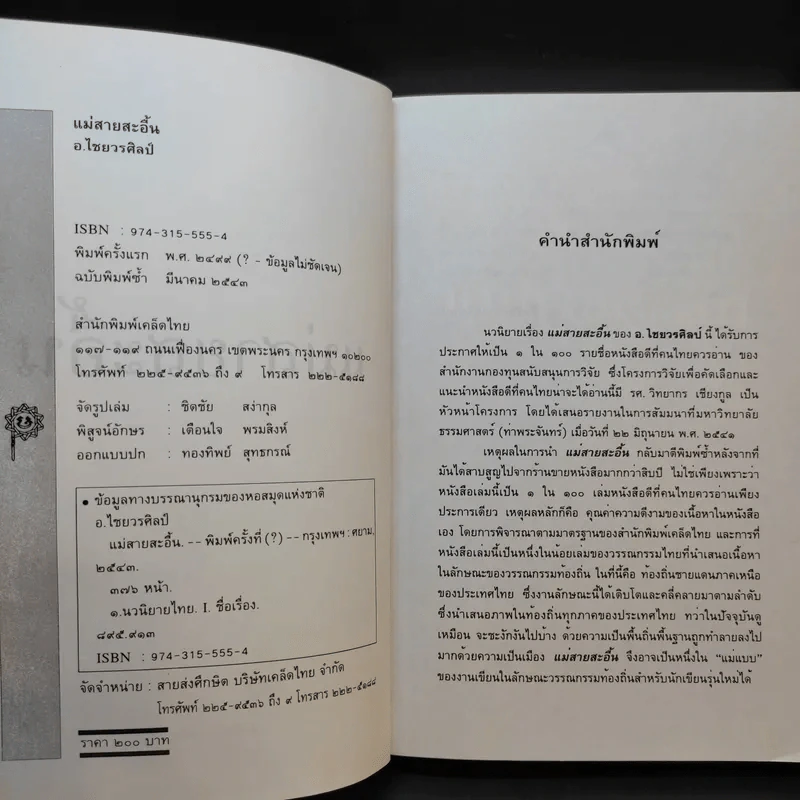 แม่สายสะอื้น
อ.ไชยวรศิลป์
ISBN : 974-315-555-4
พิมพ์ครั้งแรก พ.ศ. ๒๔๙๙ (? - ข้อมูลไม่ชัดเจน)
ฉบับพิมพ์ซ้ำ มีนาคม ๒๕๔๓
สำนักพิมพ์เคล็ดไทย
๑๑๗-๑๑๙ ถนนเฟื่องนคร เขตพระนคร กรุงเทพฯ ๑๐๒๐๐
โทรศัพท์ ๒๒๕-๙๕๓๖ ถึง ๙ โทรสาร ๒๒๒-๕๑๘๘
จัดรูปเล่ม : ชิตชัย สง่ากุล
พิสูจน์อักษร : เตือนใจ พรมสิงห์
ออกแบบปก : ทองทิพย์ สุทธกรณ์
• ข้อมูลทางบรรณานุกรมของหอสมุดแห่งชาติ
อ.ไชยวรศิลป์
แม่สายสะอื้น. -- พิมพ์ครั้งที่ (?) -- กรุงเทพฯ : ศยาม,
๒๕๔๓.
๓๗๖ หน้า.
๑.นวนิยายไทย. I. ชื่อเรื่อง.
๘๙๕.๙๑๓
ISBN : 974-315-555-4
จัดจำหน่าย : สายส่งศึกษิต บริษัทเคล็ดไทย จำกัด
โทรศัพท์ ๒๒๕-๙๕๓๖ ถึง ๙ โทรสาร ๒๒๒-๕๑๘๘
ราคา ๒๐๐ บาท
คำนำสำนักพิมพ์
นวนิยายเรื่อง แม่สายสะอื้น ของ อ.ไชยวรศิลป์ นี้ ได้รับการ
ประกาศให้เป็น ๑ ใน ๑๐๐ รายชื่อหนังสือดีที่คนไทยควรอ่าน ของ
สำนักงานกองทุนสนับสนุนการวิจัย ซึ่งโครงการวิจัยเพื่อคัดเลือกและ
แนะนำหนังสือดีที่คนไทยน่าจะได้อ่านนี้มี รศ. วิทยากร เชียงกูล เป็น
หัวหน้าโครงการ โดยได้เสนอรายงานในการสัมมนาที่มหาวิทยาลัย
ธรรมศาสตร์ (ท่าพระจันทร์) เมื่อวันที่ ๒๒ มิถุนายน พ.ศ. ๒๕๔๑
เหตุผลในการนำ แม่สายสะอื้น กลับมาตีพิมพ์ซ้ำหลังจากที่
มันได้สาบสูญไปจากร้านขายหนังสือมากกว่าสิบปี ไม่ใช่เพียงเพราะว่า
หนังสือเล่มนี้เป็น ๑ ใน ๑๐๐ เล่มหนังสือดีที่คนไทยควรอ่านเพียง
ประการเดียว เหตุผลหลักก็คือ คุณค่าความดีงามของเนื้อหาในหนังสือ
เอง โดยการพิจารณาตามมาตรฐานของสำนักพิมพ์เคล็ดไทย และการที่
หนังสือเล่มนี้เป็นหนึ่งในน้อยเล่มของวรรณกรรมไทยที่นำเสนอเนื้อหา
ในลักษณะของวรรณกรรมท้องถิ่น ในที่นี้คือ ท้องถิ่นชายแดนภาคเหนือ
ของประเทศไทย ซึ่งงานลักษณะนี้ได้เติบโตและคลี่คลายมาตามลำดับ
ซึ่งนำเสนอภาพในท้องถิ่นทุกภาคของประเทศไทย ทว่าในปัจจุบันดู
เหมือน จะชะงักงันไปบ้าง ด้วยความเป็นพื้นถิ่นพื้นฐานถูกทำลายลงไป
มากด้วยความเป็นเมือง แม่สายสะอื้น จึงอาจเป็นหนึ่งใน “แม่แบบ”
ของงานเขียนในลักษณะวรรณกรรมท้องถิ่นสำหรับนักเขียนรุ่นใหม่ได้